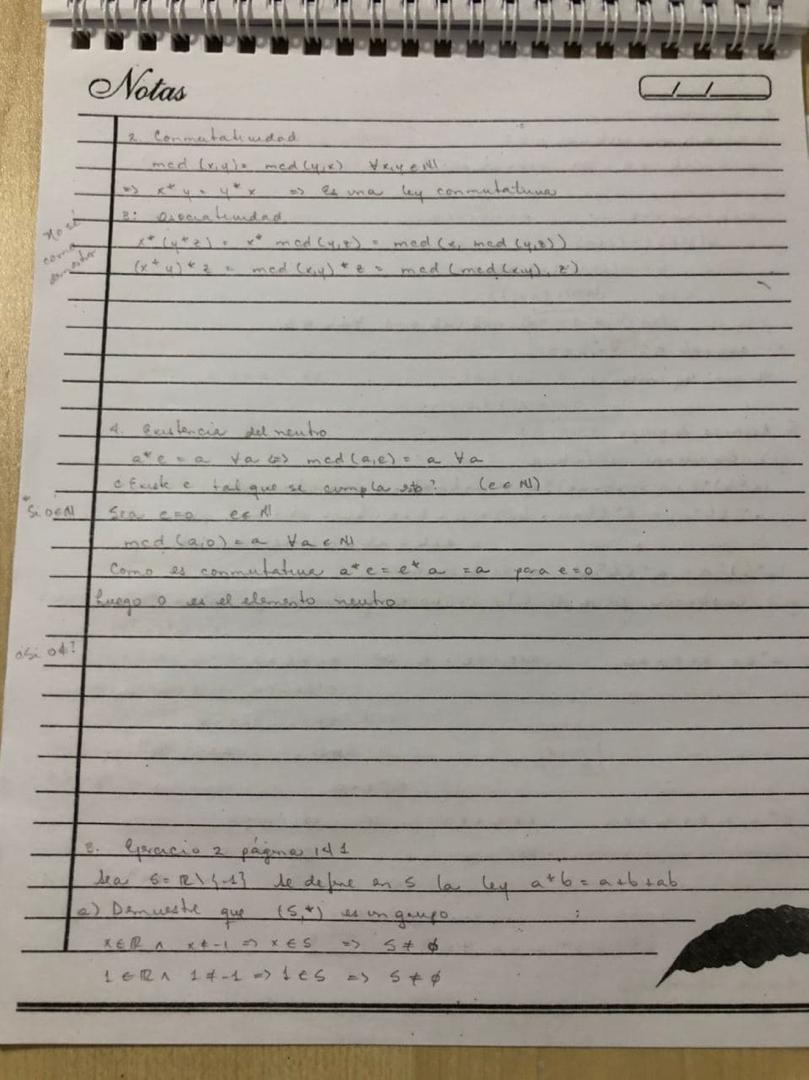 Notas
2. Conmutatividad
mcd (x,y) = mcd (y,x) ∀x,y ∈ ℕ
=> x*y = y*x => Es una ley conmutativa
3: Asociatividad
No sé como demostrar
x*(y*z) = x* mcd(y,z) = mcd(x, mcd(y,z))
(x*y)*z = mcd(x,y)*z = mcd(mcd(x,y), z)
4. Existencia del neutro
a*e = a ∀a <=> mcd(a,e) = a ∀a
¿Existe e tal que se cumpla esto? (e ∈ ℕ)
*Si 0∈ℕ
Sea e=0 e∈ℕ
mcd (a,0) = a ∀a ∈ ℕ
Como es conmutativa a*e = e*a = a para e=0
Luego 0 es el elemento neutro
¿Si 0∉?
Ejercicio 2 página 141
Sea S = ℝ\{-1} se define en S la ley a*b = a+b+ab
a) Demuestre que (S,*) es un grupo
x∈ℝ ∧ x≠-1 => x∈S => S≠∅
1∈ℝ ∧ 1≠-1 => 1∈S => S≠∅